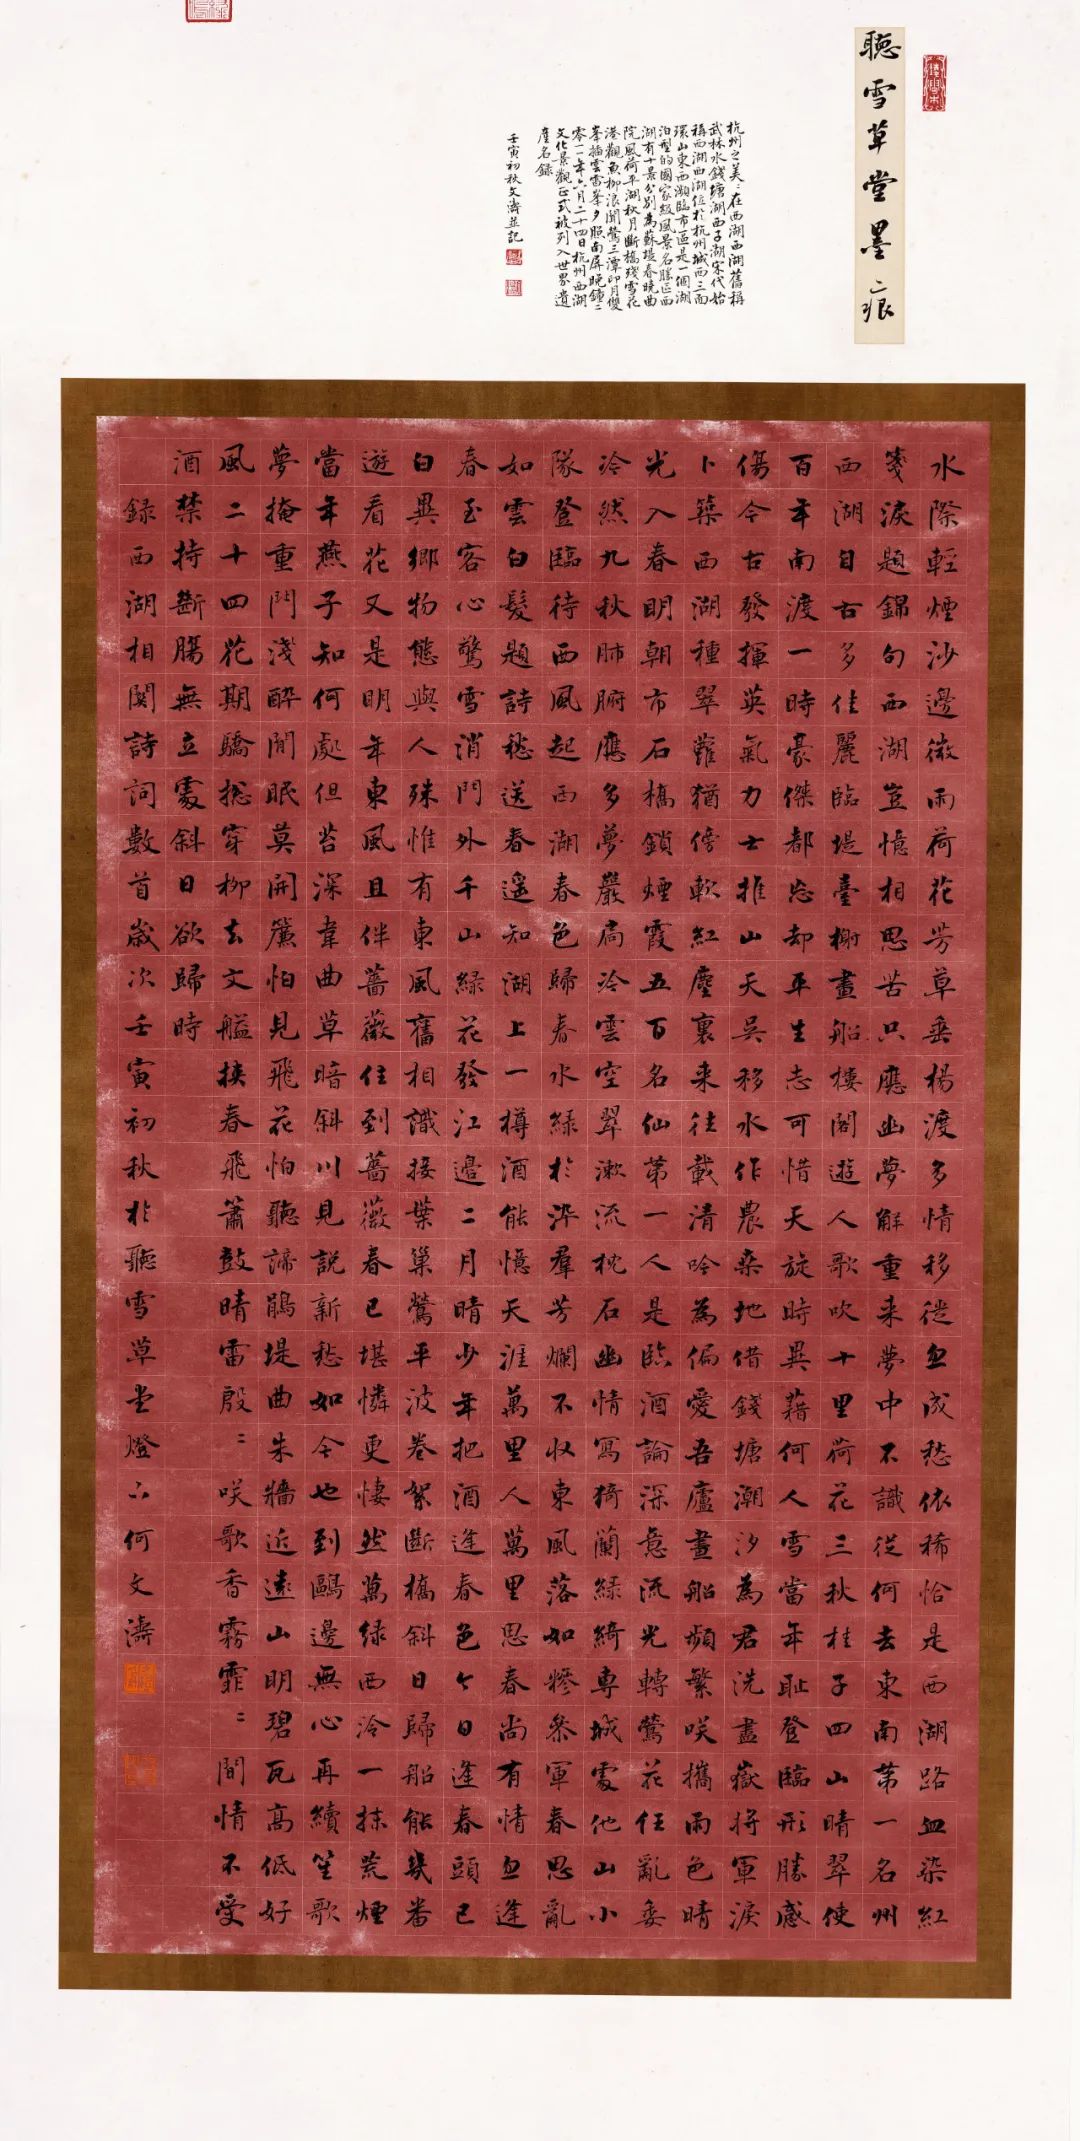 聽雪草堂墨痕
杭州之美:在西湖西湖舊稱
武林水錢塘湖西子湖宋代始
稱西湖西湖位於杭州城西三面
環山東西瀕臨市區是一個湖
泊型的國家級風景名勝區西
湖有十景分別為蘇堤春曉曲
院風荷平湖秋月斷橋殘雪花
港觀魚柳浪聞鶯三潭印月雙
峯插雲雷峯夕照南屏晚鐘二
零一一年六月二十四日杭州西湖
文化景觀正式被列入世界遺
產名錄
壬寅初秋文濤並記
水際輕煙沙邊微雨荷花芳草垂楊渡多情移徙忽成愁依稀恰是西湖路血染紅
箋淚題錦句西湖豈憶相思苦只應幽夢解重来夢中不識從何去東南第一名州
西湖自古多佳麗臨堤臺榭畫船樓閣遊人歌吹十里荷花三秋桂子四山晴翠使
百年南渡一時豪傑都忘却平生志可惜天旋時異藉何人雪當年恥登臨形勝感
傷今古發揮英氣力士推山天吳移水作農桑地借錢塘潮汐為君洗盡嶽將軍淚
卜築西湖種翠蘿猶傍軟紅塵裏来往載清吟為偏愛吾廬畫船頻繁咲攜雨色晴
光入春明朝市石橋鎖煙霞五百名仙第一人是臨酒論深意流光轉鶯花任亂委
冷然九秋肺腑應多夢巖扃冷雲空翠漱流枕石幽情寫猗蘭綠綺專城處他山小
隊登臨待西風起西湖春色歸春水綠於染羣芳爛不收東風落如糝参軍春思亂
如雲白髮題詩愁送春遥知湖上一樽酒能憶天涯萬里人萬里思春尚有情忽逢
春至客心驚雪消門外千山綠花發江邉二月晴少年把酒逢春色今日逢春頭已
白異鄉物態與人殊惟有東風舊相識接葉巢鶯平波卷絮斷橋斜日歸船能幾番
遊看花又是明年東風且伴薔薇住到薔薇春已堪憐更悽然萬绿西泠一抹荒煙
當年燕子知何處但苔深韋曲草暗斜川見説新愁如今也到鷗邊無心再續笙歌
夢掩重門淺醉閒眠莫開簾怕見飛花怕聽諦鵑堤曲朱牆近遠山明碧瓦高低好
風二十四花期驕驄穿柳去文艗挾春飛簫鼓晴雷殷:咲歌香霧霏:閒情不受
酒禁持斷腸無立處斜日欲歸時
録西湖相関詩詞數首歲次壬寅初秋於聽雪草堂燈下何文濤